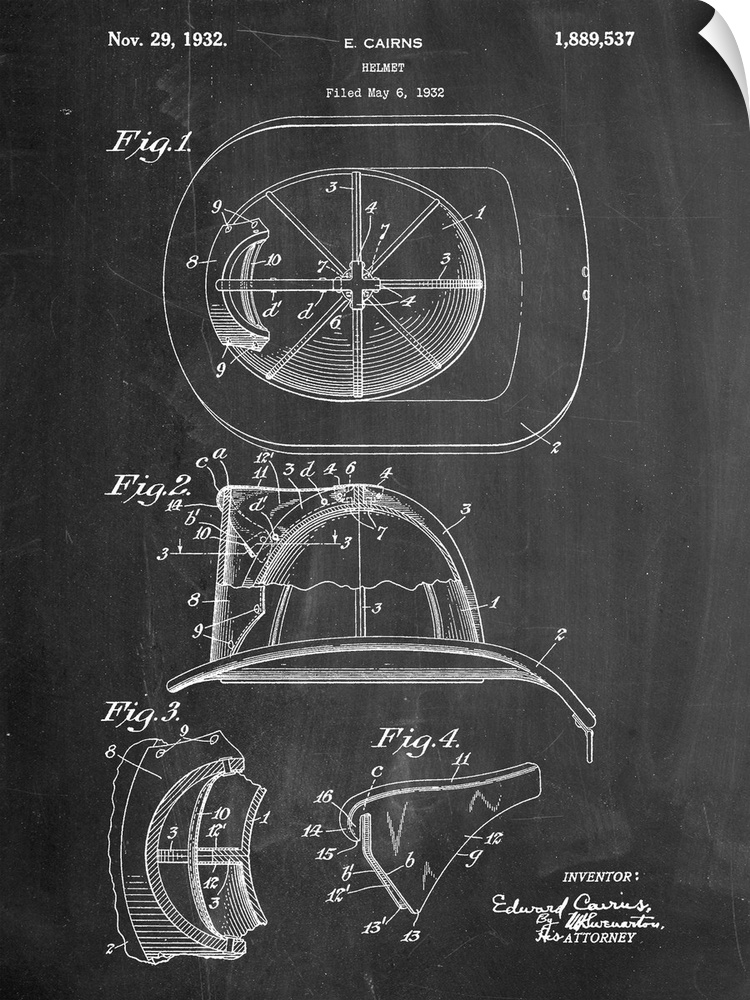 Nov. 29, 1932. E. CAIRNS 1,889,537
HELMET
Filed May 6, 1932
Fig.1.
3 4 1 9 7 7 8 10 3 d' d 4 6 9 2
Fig.2.
c a 11 12' 3 d 4 6 4 3 14 b' d' 10 7 3 3 8 3 1 9 2
Fig.3.
9 8 10 1 3 12' 12 3 2
Fig.4.
c 11 16 14 12 15 b g b' 12' 13' 13
INVENTOR:
Edward Cairns,
By
His ATTORNEY